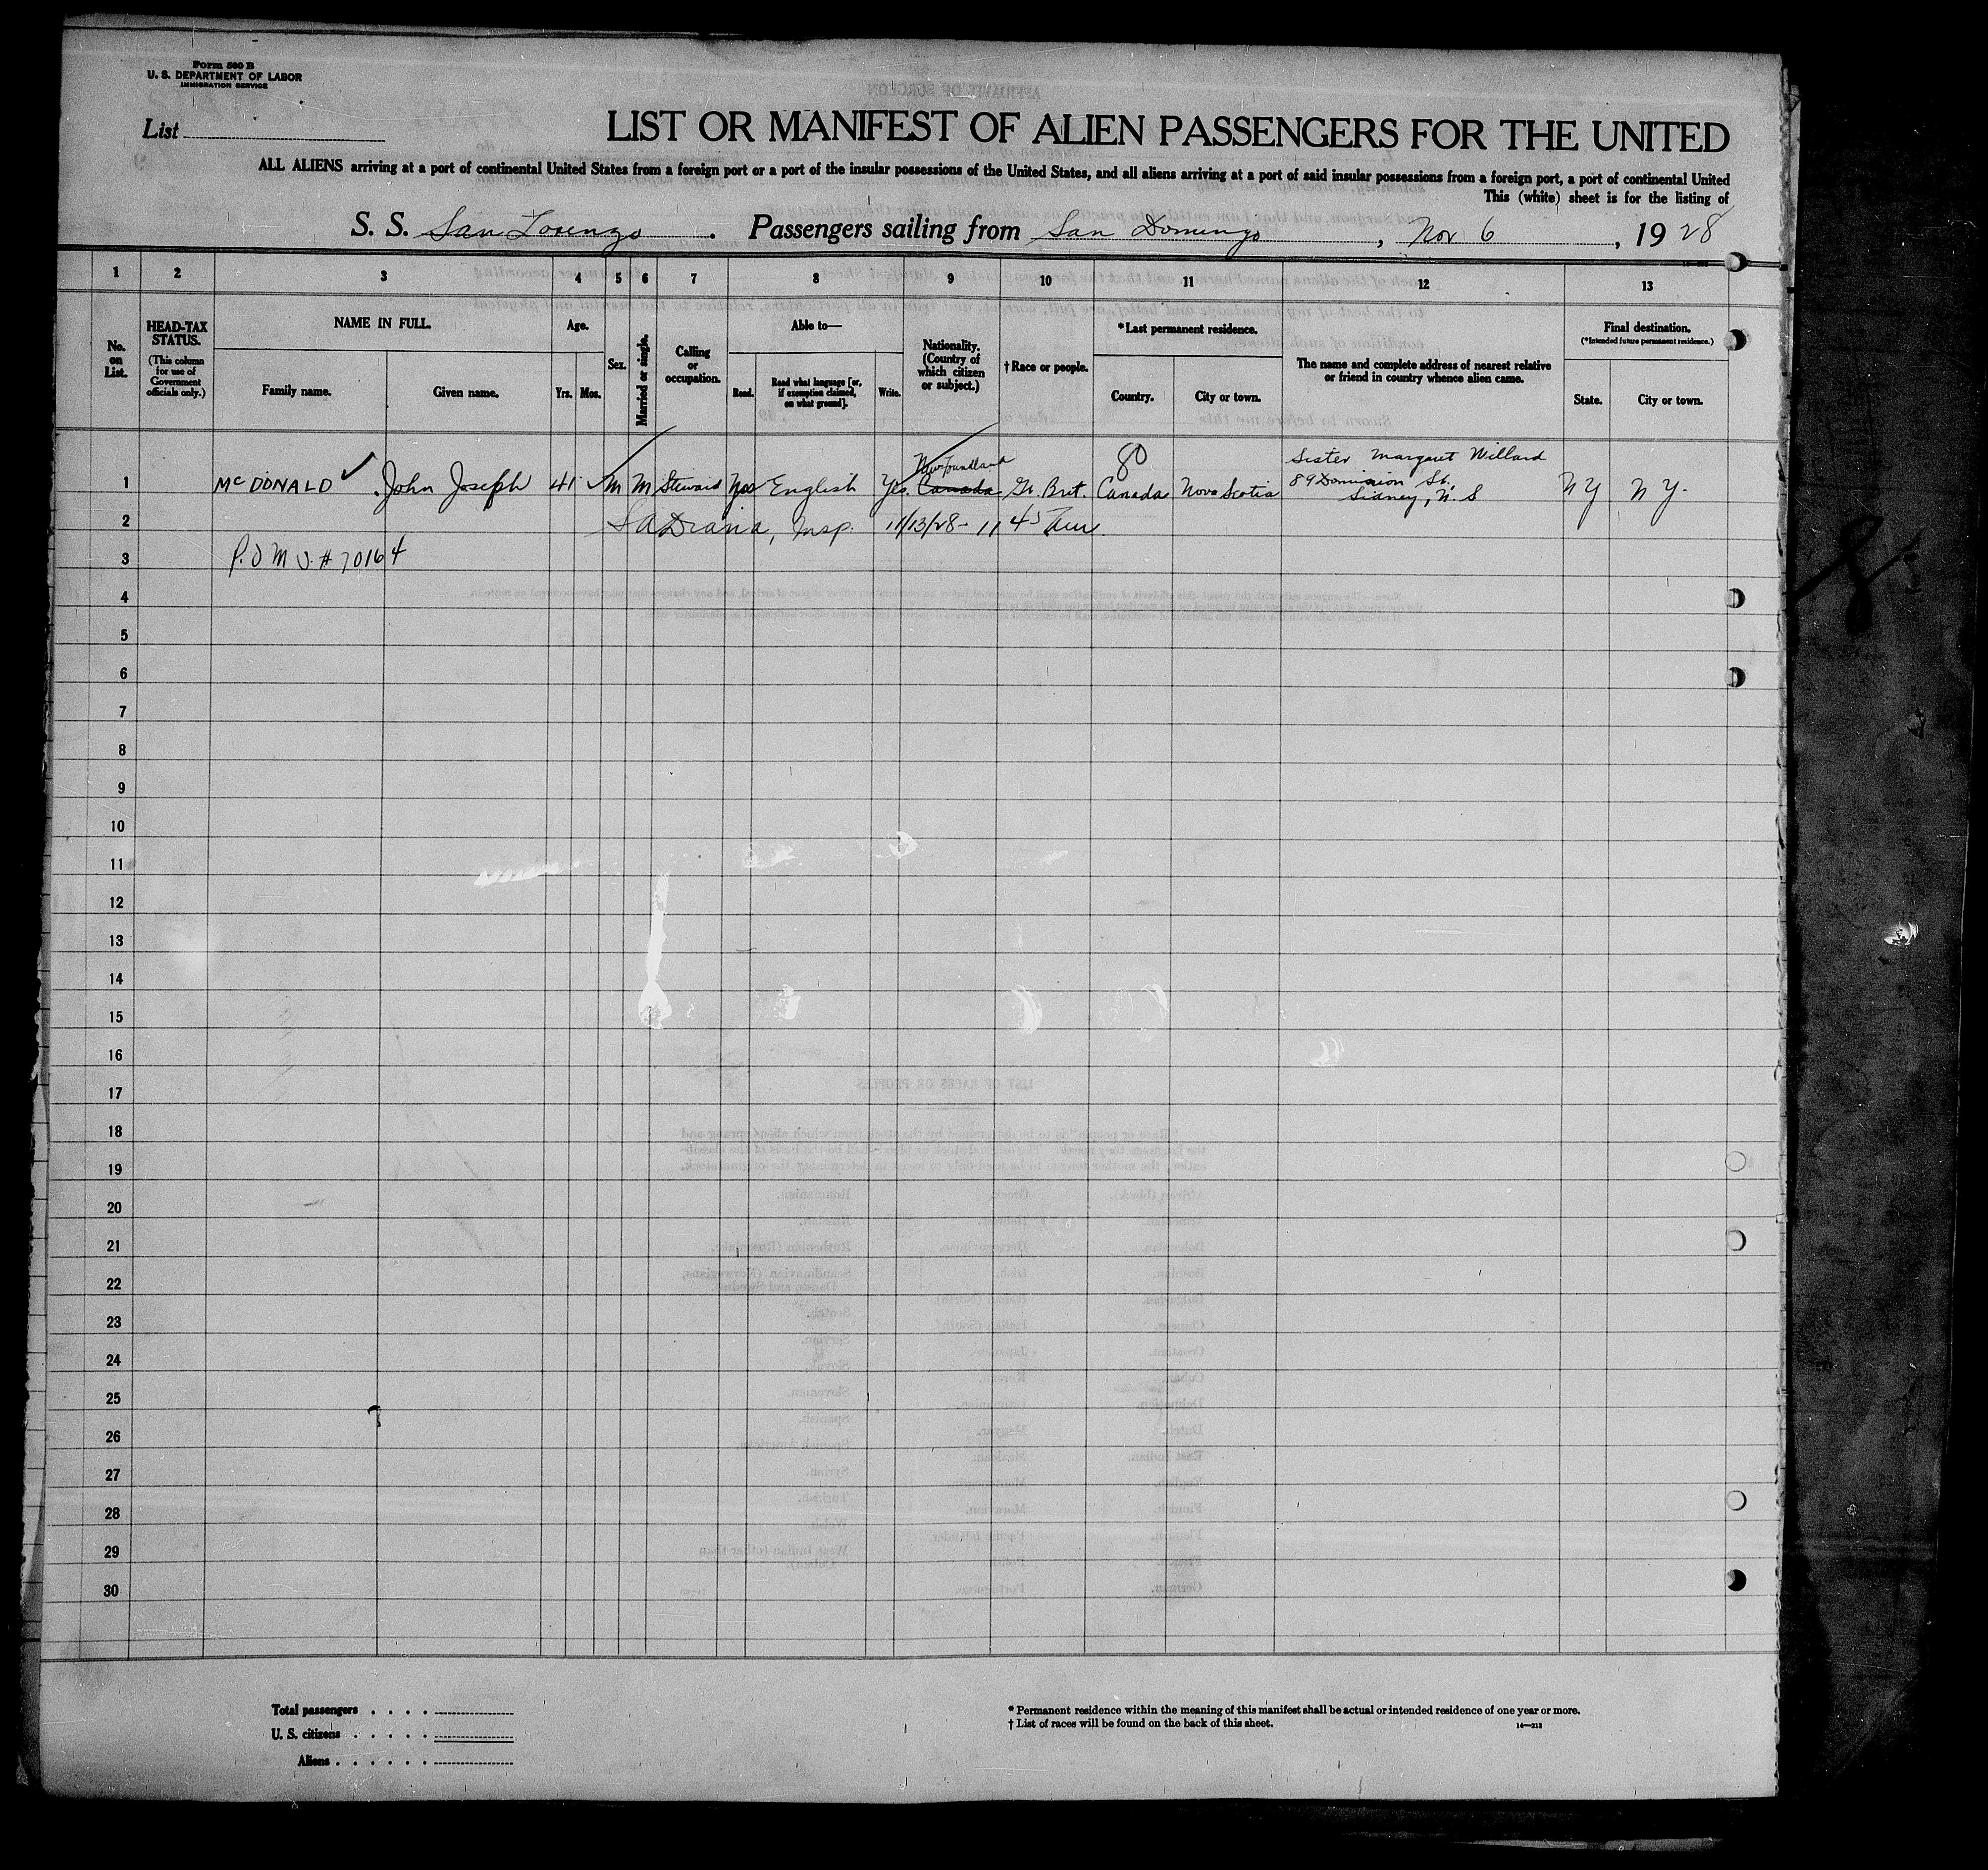 Form 500 B
U. S. DEPARTMENT OF LABOR
IMMIGRATION SERVICE
List
LIST OR MANIFEST OF ALIEN PASSENGERS FOR THE UNITED
ALL ALIENS arriving at a port of continental United States from a foreign port or a port of the insular possessions of the United States, and all aliens arriving at a port of said insular possessions from a foreign port, a port of continental United
This (white) sheet is for the listing of
S. S. San Lorenzo . Passengers sailing from San Domingo , Nov 6 , 19 28
1 2 3 4 5 6 7 8 9 10 11 12 13
No. on List.
HEAD-TAX STATUS.
(This column for use of Government officials only.)
NAME IN FULL.
Family name. Given name.
Age.
Yrs. Mos.
Sex.
Married or single.
Calling or occupation.
Able to—
Read. Read what language [or, if exemption claimed, on what ground]. Write.
Nationality. (Country of which citizen or subject.)
† Race or people.
* Last permanent residence.
Country. City or town.
The name and complete address of nearest relative or friend in country whence alien came.
Final destination.
(* Intended future permanent residence.)
State. City or town.
80 Sister Margaret Willard
Newfoundland
1 McDONALD ✓ John Joseph 41 M M Steward Yes English Yes Canada Gt. Brit. Canada Nova Scotia 89 Dominion St. N Y N Y.
Sidney, N. S
2 Insp. 11/13/28- 11 45
3 P.O M V. # 70164
4
5
6
7
8
9
10
11
12
13
14
15
16
17
18
19
20
21
22
23
24
25
26
27
28
29
30
8
Total passengers . . . .
U. S. citizens . . . . .
Aliens . . . . . .
* Permanent residence within the meaning of this manifest shall be actual or intended residence of one year or more.
† List of races will be found on the back of this sheet. 14—213